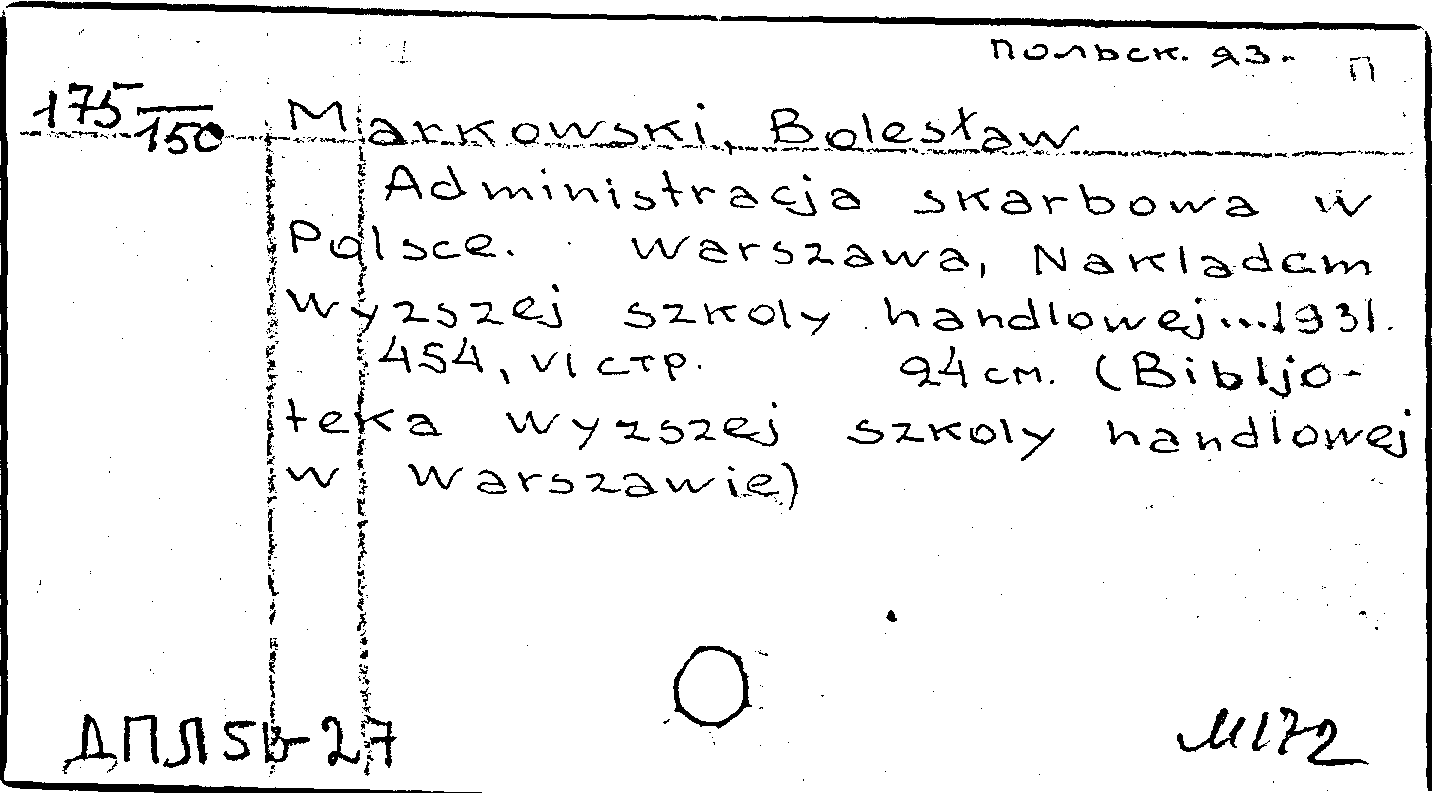 польск. яз. П
175/150 Markowski, Bolesław
Administracja skarbowa w
Polsce. Warszawa, Nakladem
wyzszej szkoly handlowej...1931.
454, VI стр. 24 см. (Bibljo-
teka wyzszej szkoly handlowej
w Warszawie)
ДПЛ 56-27 М172